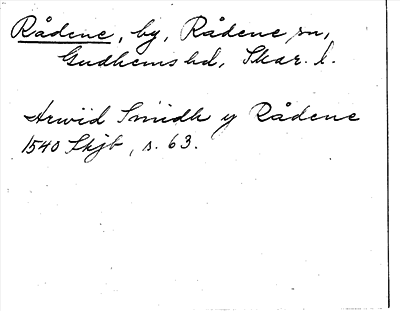 Rådene, by, Rådene sn,
Gudhems hd, Skar. l.
Arwid Smidh y Rådene
1540 Skjb, s. 63.